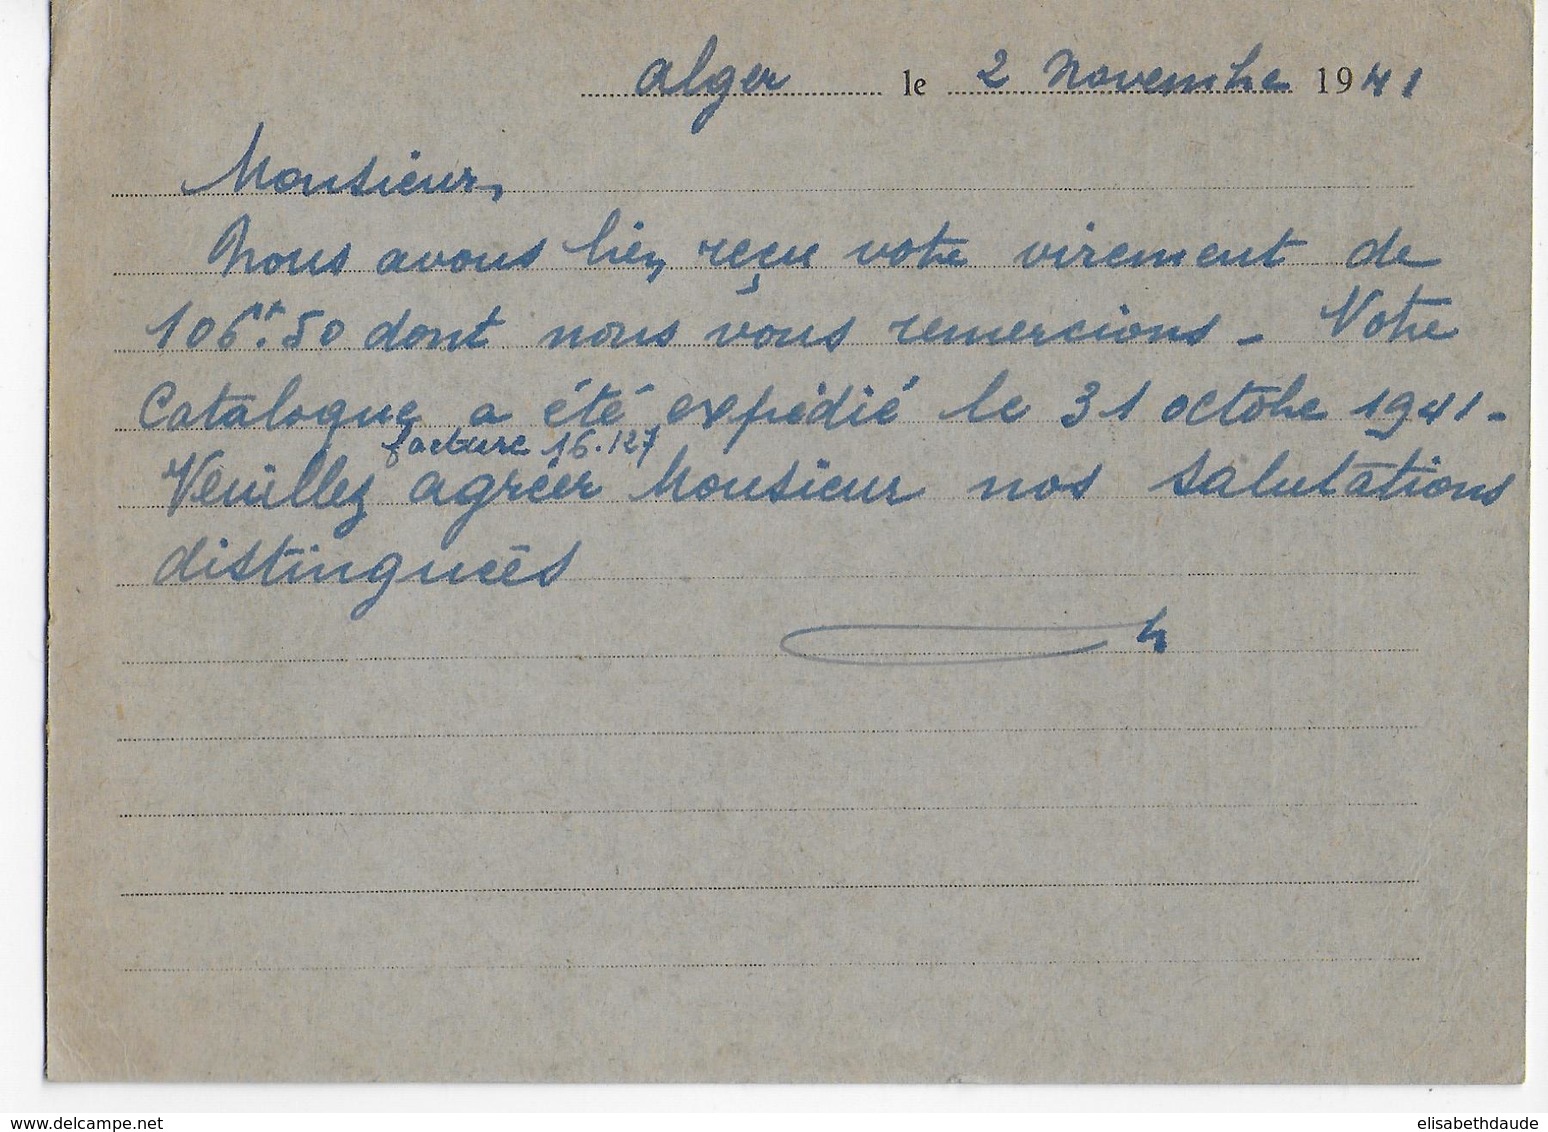 Alger le 2 Novembre 1941
Monsieur,
Nous avons bien reçu votre virement de
106frs.50 dont nous vous remercions - Votre
Catalogue a été expédié le 31 octobre 1941-
facture 16.127
Veuillez agréer Monsieur nos salutations
distinguées
delcampe.net
elisabethdaude